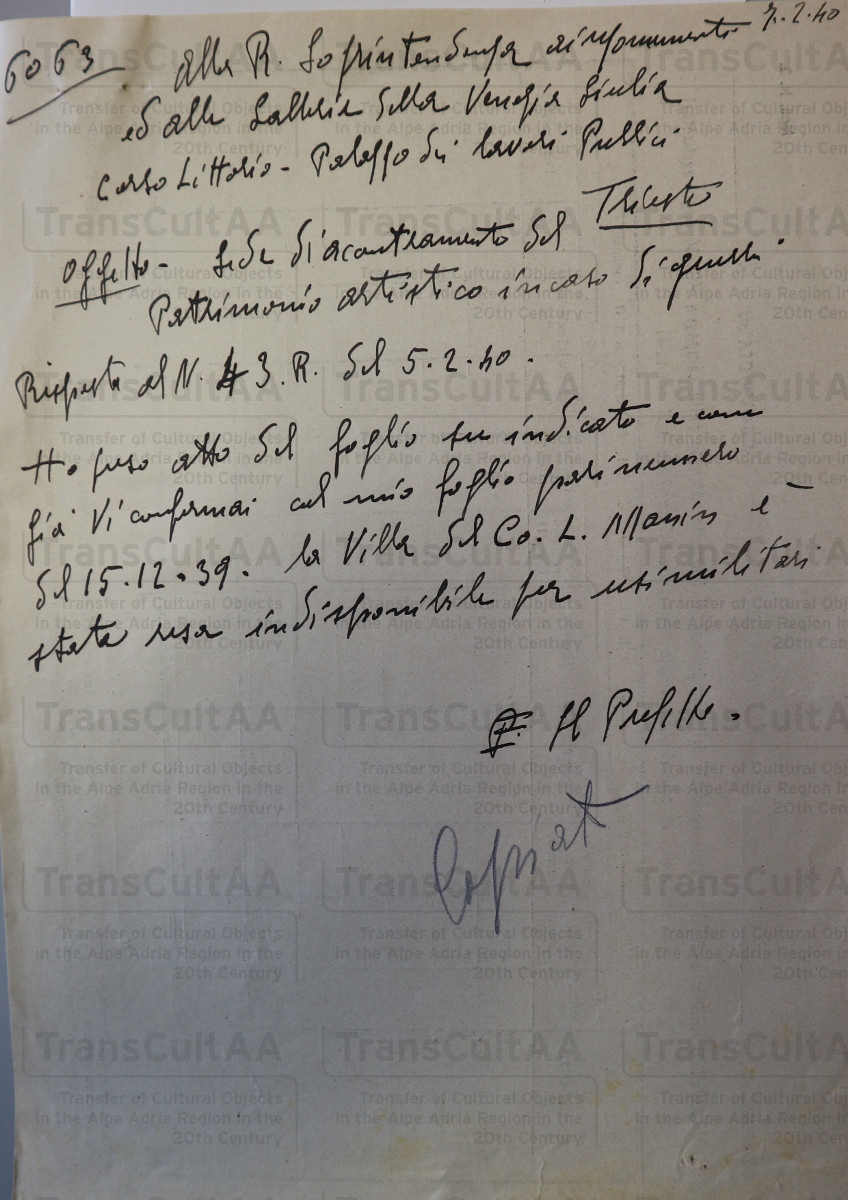 7.2.40
6063 alla R. Soprintendenza ai monumenti
ed alle Gallerie della Venezia Giulia
Corso Littorio - Palazzo dei lavori Pubblici
Trieste
Oggetto - Sede di accentramento del
Patrimonio artistico in caso di guerra.
Risposta al N. 43.R. del 5.2.40.
Ho preso atto del foglio su indicato e come
già Vi confermai col mio foglio pari numero
del 15.12.39. la Villa del Co. L. Manin è
stata resa indisponibile per usi militari
Il Prefetto.